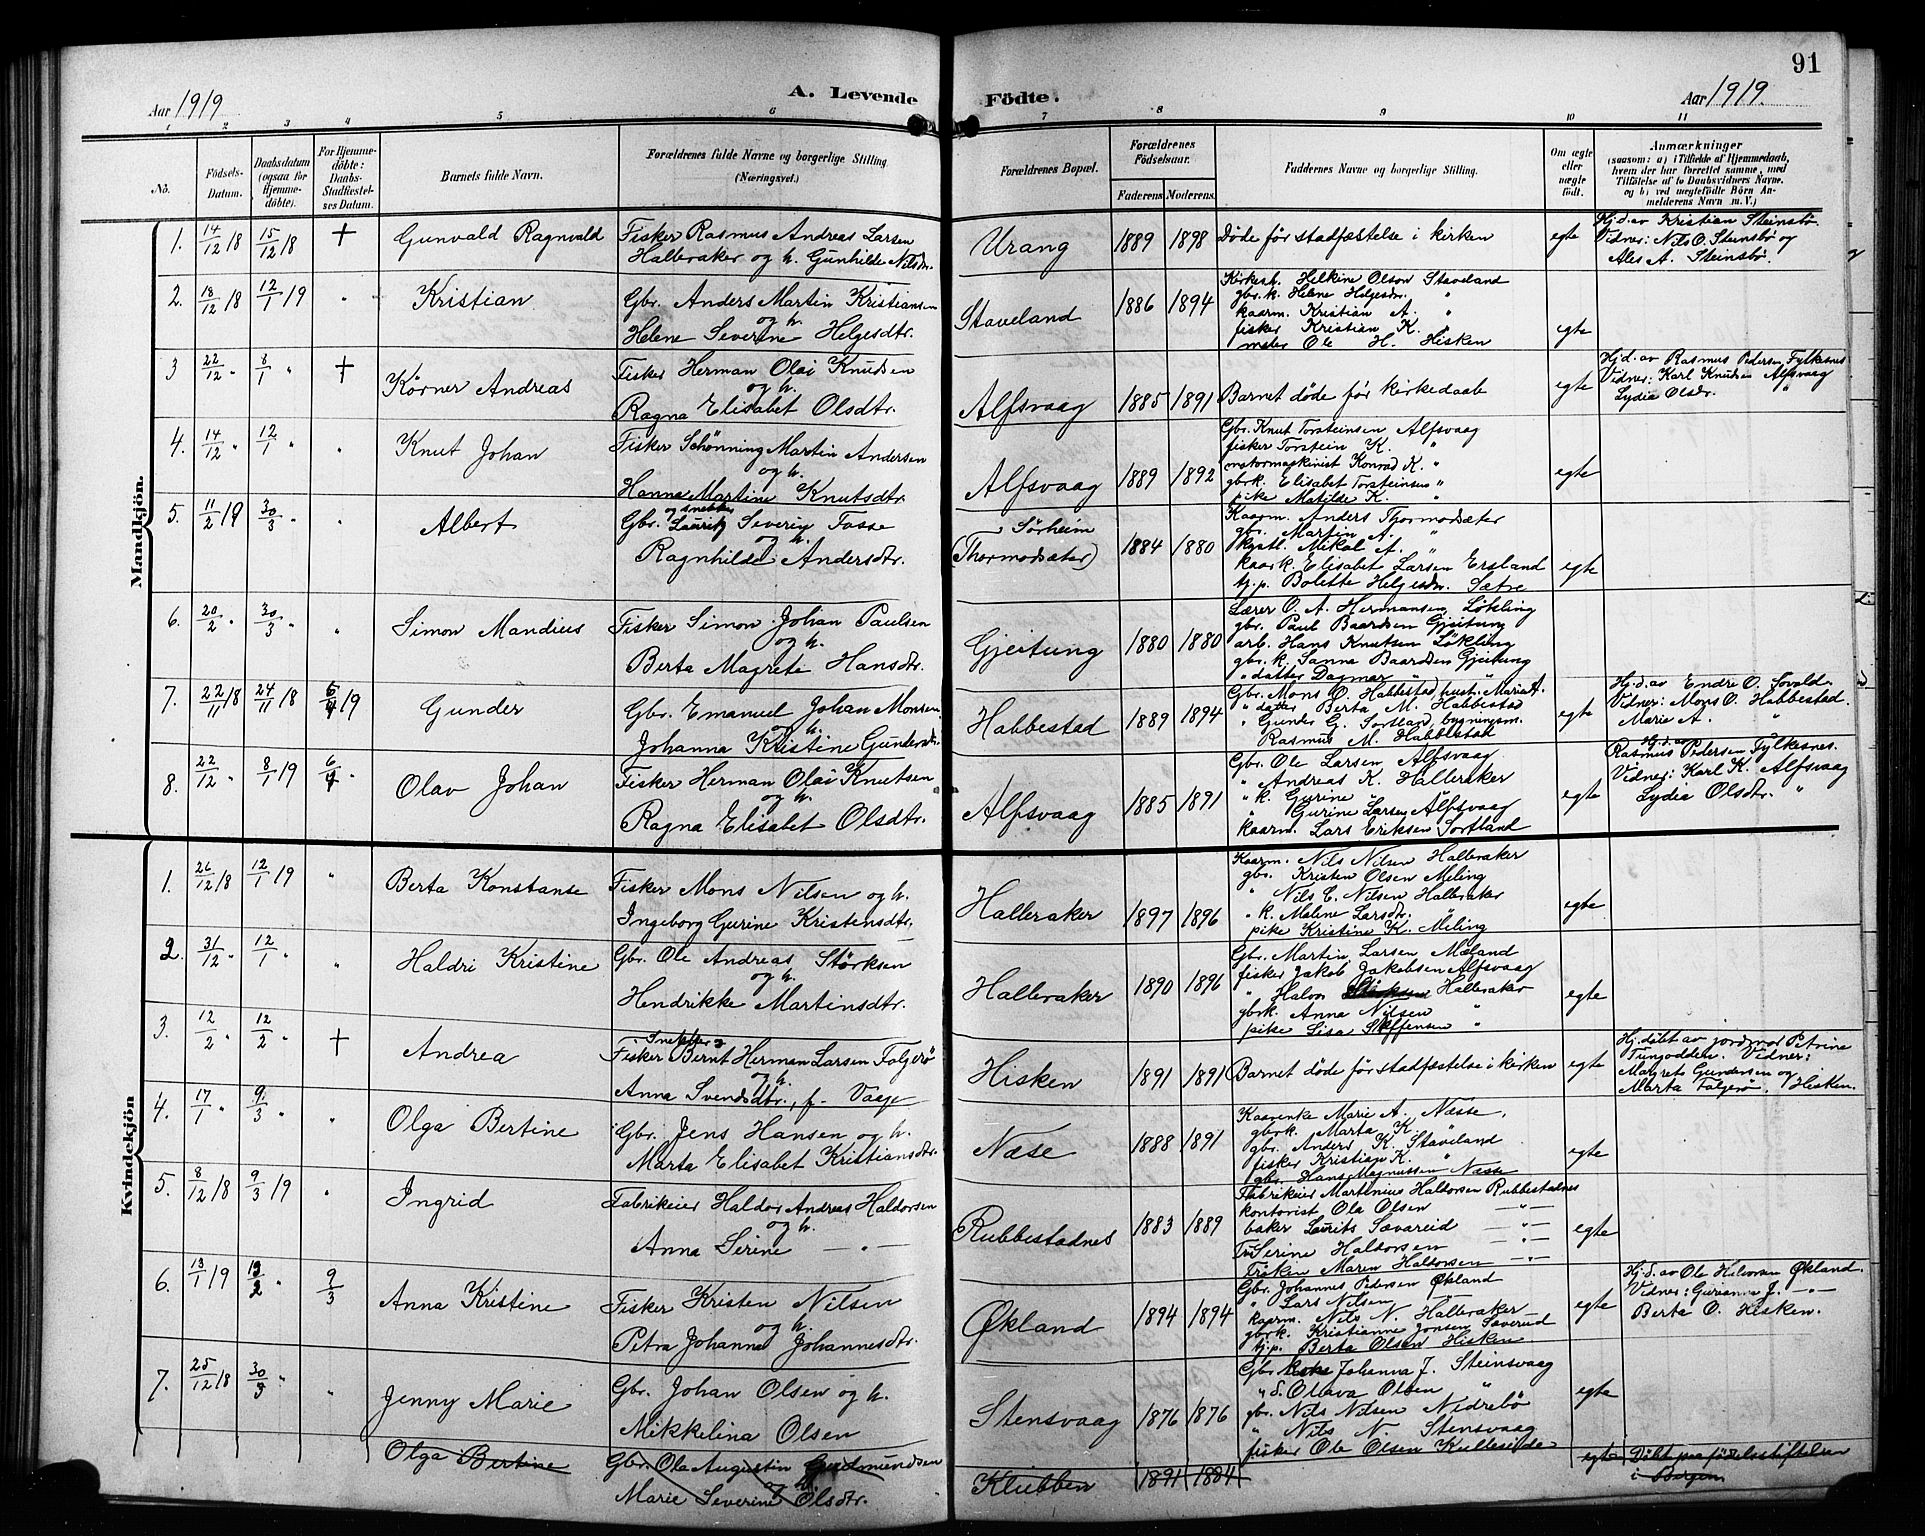 91
Aar 1919
A. Levende Födte.
Aar 1919.
1 2 3 4 5 6 7 8 9 10 11
No.
Födsels-
Datum.
Daabsdatum
(ogsaa for
Hjemme-
döbte).
For Hjemme-
döbte:
Daabs-
Stadfæstel-
ses Datum.
Barnets fulde Navn.
Forældrenes fulde Navne og borgerlige Stilling.
(Næringsvei.)
Forældrenes Bopæl.
Forældrenes
Födselsaar.
Faderens Moderens.
Faddernes Navne og borgerlige Stilling.
Om ægte
eller
uægte
födt.
Anmærkninger
(saasom: a) i Tilfælde af Hjemmedaab,
hvem der har forrettet samme, med
Tilföielse af to Daabsvidners Navne.
og b) ved uægtefödte Börn An-
melderens Navn m. V.)
Mandkjön.
1. 14/12 18 15/12 18 + Gunvald Ragnvald
Fisker Rasmus Andreas Larsen
Halleraker og h. Gunhilde Nilsdtr.
Urang 1889 1898 Døde før stadfæstelse i kirken egte
Hj.d. av Kristian Steinsbø.
Vidner: Nils O. Steinsbø og
Ales A. Steinsbø.
2. 18/12 18 12/1 19 " Kristian
Gbr. Anders Martin Kristiansen
og h.
Helene Severine Helgesdtr.
Staveland 1886 1894
Kirkesh. Helkine Olson Staveland
gbr.k. Helene Helgesdtr. "
kaarm. Kristian A. "
fisker Kristian K. "
maler Ole H. Hisken
egte
3 22/12 " 8/1 " + Körner Andreas
Fisker Herman Olai Knudsen
og h.
Ragna Elisabet Olsdtr.
Alfsvaag 1885 1891 Barnet døde før kirkedaab egte
Hj.d. av Rasmus Pedersen Fylkesnes
Vidner: Karl Knudsen Alfsvaag
Lydia Olsdr. "
4. 14/12 " 12/1 " " Knut Johan
Fisker Schönning Martin Andersen
og h.
Hanna Martine Knutsdtr.
Alfsvaag 1889 1892
Gbr. Knut Torsteinsen Alfsvaag
fisker Torstein K. "
motormaskinist Konrad K. "
gbrk. Elisabet Torsteinsen "
pike Matilde K. "
egte
5. 11/2 19 30/3 " " Albert
og snekker
Gbr. Lauritz Severin Fosse
og h.
Ragnhilde Andersdtr.
Sørheim
(Thormodsæter) 1884 1880
Kaarm. Anders Thormodsæter
gbr. Martin A. "
Mikal A. "
kaark. Elisabet Larsen Ersland
tj.p. Bolette Helgesdtr. Sætre
egte
6. 20/2 " 30/3 " " Simon Mandius
Fisker Simon Johan Paulsen
og h.
Berta Magrete Hansdtr.
Gjeitung 1880 1880
Lærer O. A. Hermansen, Løkling
gbr. Paul Baardsen Gjeitung
arb. Hans Knutsen Løkling
gbr. k. Sanna Baardsen Gjeitung
" datter Dagmar " "
7. 22/11 18 24/11 18 6/4 19 Gunder
Gbr. Emanuel Johan Monsen
og h.
Johanna Kristine Gundersdtr.
Habbestad 1889 1894
Gbr. Mons O. Habbestad, hust. Maria A.
" dater Berta M. Habbestad
" Gunder G. Sortland, bygningsm.
Rasmus M. Habbestad
egte
Hj.d. av Endre O. Tovald.
Vidner: Mons O. Habbestad.
Marie A. "
8. 22/12 " 8/1 19 6/4 " Olav Johan
Fisker Herman Olai Knutsen
og h.
Ragna Elisabet Olsdtr.
Alfsvaag 1885 1891
Gbr. Ole Larsen Alfsvaag
" Andreas K. Halleraker
" k. Gurine " "
" Gurine Larsen Alfsvaag
kaarm. Lars Eriksen Sortland
egte
Hj.d. av
Rasmus Pedersen Fylkesnes.
Vidner: Karl K. Alfsvaag
Lydia Olsdtr. "
Kvindekjön
1. 26/12 18 12/1 19 " Berta Konstanse
Fisker Mons Nilsen og h.
Ingeborg Gurine Kristensdtr.
Halleraker 1897 1896
Kaarm. Nils Nilsen Halleraker
gbr. Kristen Olsen Meling
" Nils C. Nilsen Halleraker
" k. Malene Larsdtr. "
pike Kristine K. Meling
egte
2. 31/12 " 12/1 " " Haldri Kristine
Gbr. Ole Andreas Störksen
og h.
Hendrikke Martinsdtr.
Halleraker 1890 1896
Gbr. Martin Larsen Mæland
fisker Jakob Jakobsen Alfsvaag
" Halvor Halleraker
gbrk. Anna Nilsen "
pike Lisa Steffensen "
egte
3. 12/2 " 12/2 " + Andrea
Snekker
Fisker Bernt Herman Larsen Folgerø
og h.
Anna Svendsdtr., f. Vaage
Hisken 1891 1891 Barnet døde før stadfæstelse i kirken egte
Hj.døbt av jordmor Petrine
Tungodden. Vidner:
Magrete Gundersen og
Marta Folgerø, Hisken.
4. 17/1 " 9/3 " " Olga Bertine
Gbr. Jens Hansen og h.
Marta Elisabet Kristiansdtr.
Næse 1888 1891
Kaarenke Marie A. Næsse.
gbrk. Marta K. "
gbr. Anders K. Staveland
fisker Kristian K. "
gbr. Hans Magnussen Næsse
egte
5. 8/12 18 9/3 19 " Ingrid
Fabrikeier Haldor Andreas Haldorsen
og h.
Anna Serine — " —
Rubbestadnes 1883 1889
Fabrikeier Martinius Haldorsen Rubbestadnes
kontorist Ola Olsen — " —
baker Laurits Sævareid — " —
Fru Serine Haldorsen — " —
Frøken Maren Haldorsen — " —
egte
6. 13/1 19 13/2 " 9/3 Anna Kristine
Fisker Kristen Nilsen
og h.
Petra Johanna Johannesdtr.
Økland 1894 1894
Gbr. Johannes Pedersen Økland
" Lars Nilsen — " —
kaarm. Nils N. Halleraker
gbrk. Kristianne Jonsen Sæverud
tj.p. Berta Olsen Hisken
egte
Hj.d. av Ole Halvorsen Økland.
Vidner: Gurianna J. — " —
Berta O. Hisken.
7. 25/12 18 30/3 " " Jenny Marie
Gbr. Johan Olsen og h.
Mikkelina Olsen
Stensvaag 1876 1876
Gbr. Johanna J. Steinsvaag
" d. Olava Olsen "
gbr. Nils Nilsen Nedrebø
" Nils N. Stensvaag
fisker Ole Olsen Kulleseide
egte
Olga Bertine
Gbr. Ole Augustin Gudmundsen
og h.
Marie Severine Olsdtr.
Klubben 1891 1884 egte
Døbt paa fødselsstiftelsen
i Bergen